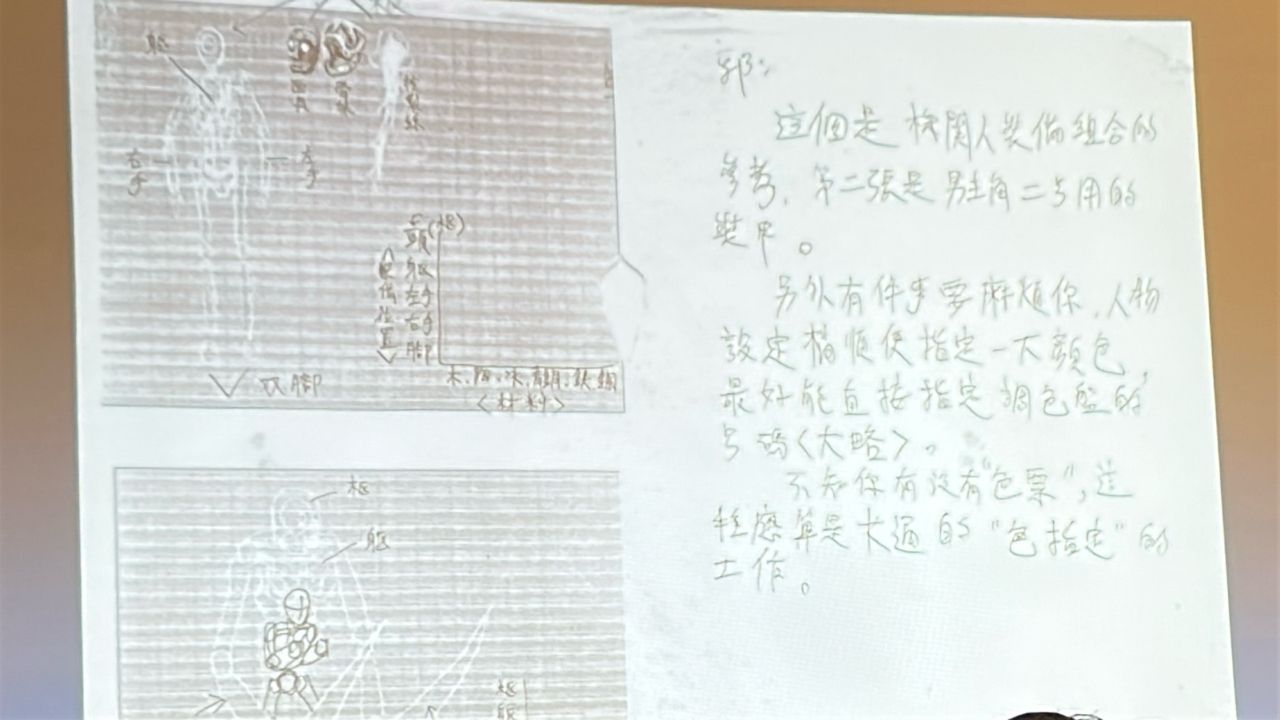 軀
右手
左手
面具
頭(樞)
軀
左手
右手
脚
裝備位置
木、陶、冰、青銅、鉄、鋼
<材料>
双脚
樞
軀
這個是機関人裝備組合的
參考，第二張是男主角二号用的
裝甲。
另外有件事要麻煩你，人物
設定稿順便指定一下顏色，
最好能直接指定調色盤的
号碼<大略>。
不知你有沒有"色票"，這
算是卡通的"色指定"的
工作。